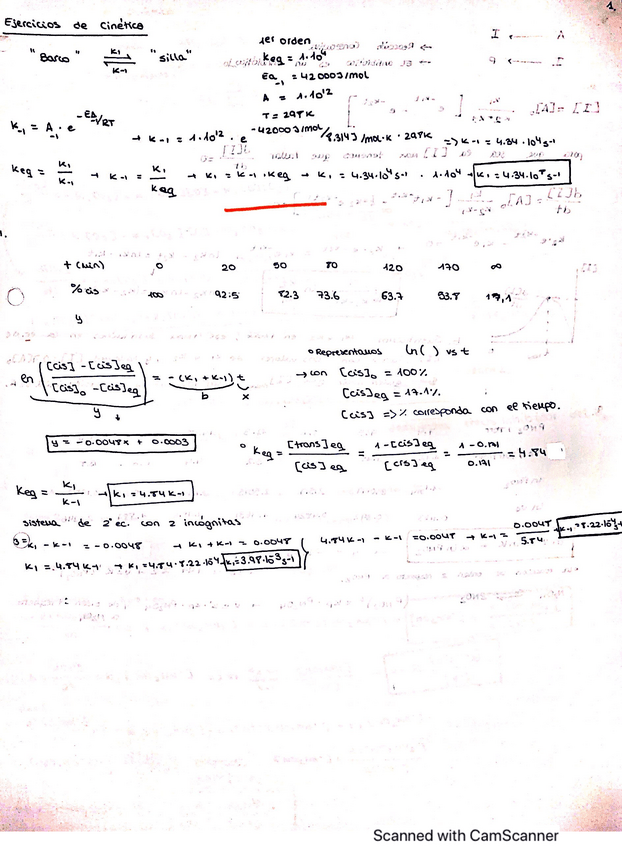 1,
Ejercicios de Cinética
"Barco" K1 ⇌ K-1 "silla"
1er orden
Keq = 1·10⁴
Ea-1 = 42000J/mol
A = 1·10¹²
T = 298K
K-1 = A-1 · e^(-EA/RT) → K-1 = 1·10¹² · e^(-42000J/mol / 8.314J/mol·K · 298K) => K-1 = 4.34·10⁴ s-1
Keq = K1/K-1 → K-1 = K1/Keq → K1 = K-1 · Keq → K1 = 4.34·10⁴ s-1 · 1·10⁴ → K1 = 4.34·10⁸ s-1
t (min) 0 20 50 80 120 170 ∞
% cis 100 92.5 82.3 73.6 63.7 53.8 17,1
y
ln ([cis] - [cis]eq / [cis]0 - [cis]eq) = -(K1 + K-1) t
y b x
Representamos ln( ) vs t
→ con [cis]0 = 100%
[cis]eq = 17.1%
[cis] => % corresponda con el tiempo.
y = -0.0048x + 0.0003
Keq = [trans]eq / [cis]eq = 1 - [cis]eq / [cis]eq = 1 - 0.171 / 0.171 = 4.84
Keq = K1/K-1 → K1 = 4.84 K-1
sistema de 2 ec. con 2 incógnitas
K1 - K-1 = -0.0048 → K1 + K-1 = 0.0048
4.84K-1 - K-1 = 0.0048 → K-1 = 0.0048 / 5.84
K1 = 4.84K-1 → K1 = 4.84 · 8.22·10⁻⁴ K1 = 3.98·10⁻³ s-1
Scanned with CamScanner